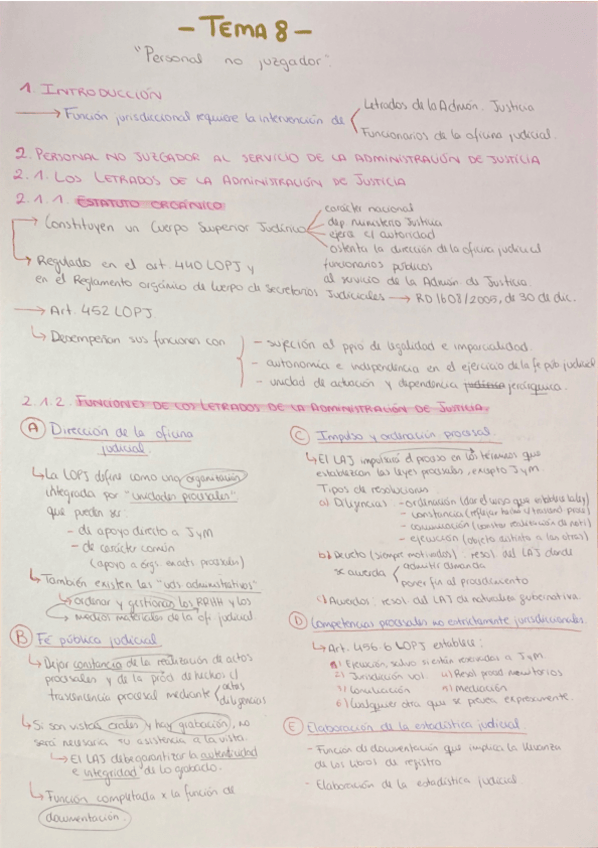 - TEMA 8 -
"Personal no juzgador".
1. INTRODUCCIÓN
→ Función jurisdiccional requiere la intervención de
Letrados de la Admón. Justicia
Funcionarios de la oficina judicial.
2. PERSONAL NO JUZGADOR AL SERVICIO DE LA ADMINISTRACIÓN DE JUSTICIA
2.1. LOS LETRADOS DE LA ADMINISTRACIÓN DE JUSTICIA
2.1.1. ESTATUTO ORGÁNICO
→ Constituyen un Cuerpo Superior Jurídico
carácter nacional
dep. ministerio Justicia
ejerce c/ autoridad
ostenta la dirección de la oficina judicial
funcionarios públicos
al servicio de la Admón de Justicia.
→ Regulado en el art. 440 LOPJ y
en el Reglamento orgánico de Cuerpo de Secretarios Judiciales → RD 1608/2005, de 30 de dic.
→ Art. 452 LOPJ
↳ Desempeñan sus funciones con
- sujeción al ppio de legalidad e imparcialidad.
- autonomía e independencia en el ejercicio de la fe púb judicial
- unidad de actuación y dependencia jerárquica.
2.1.2. FUNCIONES DE LOS LETRADOS DE LA ADMINISTRACIÓN DE JUSTICIA.
A Dirección de la oficina
judicial.
↳ La LOPJ define como una organización
integrada por "unidades procesales"
que pueden ser
- de apoyo directo a JyM
- de carácter común
(apoyo a órgs. exacts procesales)
↳ También existen las "uds administrativas"
↳ ordenar y gestionar los RRHH y los
medios materiales de la ofi judicial
B Fe pública judicial
↳ Dejar constancia de la realización de actos
procesales y de la prod de hechos c/
trascendencia procesal mediante
actas
diligencias
↳ Si son vistas orales y hay grabación, no
será necesaria su asistencia a la vista.
↳ El LAJ debe garantizar la autenticidad
e integridad de lo grabado.
↳ Función completada x la función de
documentación.
C Impulso y ordenación procesal.
↳ El LAJ impulsará el proceso en los términos que
establezcan las leyes procesales, excepto JyM.
Tipos de resoluciones
a) Diligencias - ordenación
- constancia
- comunicación
- ejecución (objeto distinto a las otras)
b) Decreto (siempre motivados): resol. del LAJ donde
se acuerda
admitir demanda
poner fin al procedimiento
c) Acuerdos: resol del LAJ de naturaleza gubernativa.
D Competencias procesales no estrictamente jurisdiccionales.
↳ Art. 456.6 LOPJ establece:
1) Ejecución salvo si están reservadas a JyM.
2) Jurisdicción vol. 4) Resol proced monitorios
3) Conciliación 5) mediación
6) Cualquier otra que se prevea expresamente.
E Elaboración de la estadística judicial
- Función de documentación que implica la llevanza
de los libros de registro
- Elaboración de la estadística judicial.